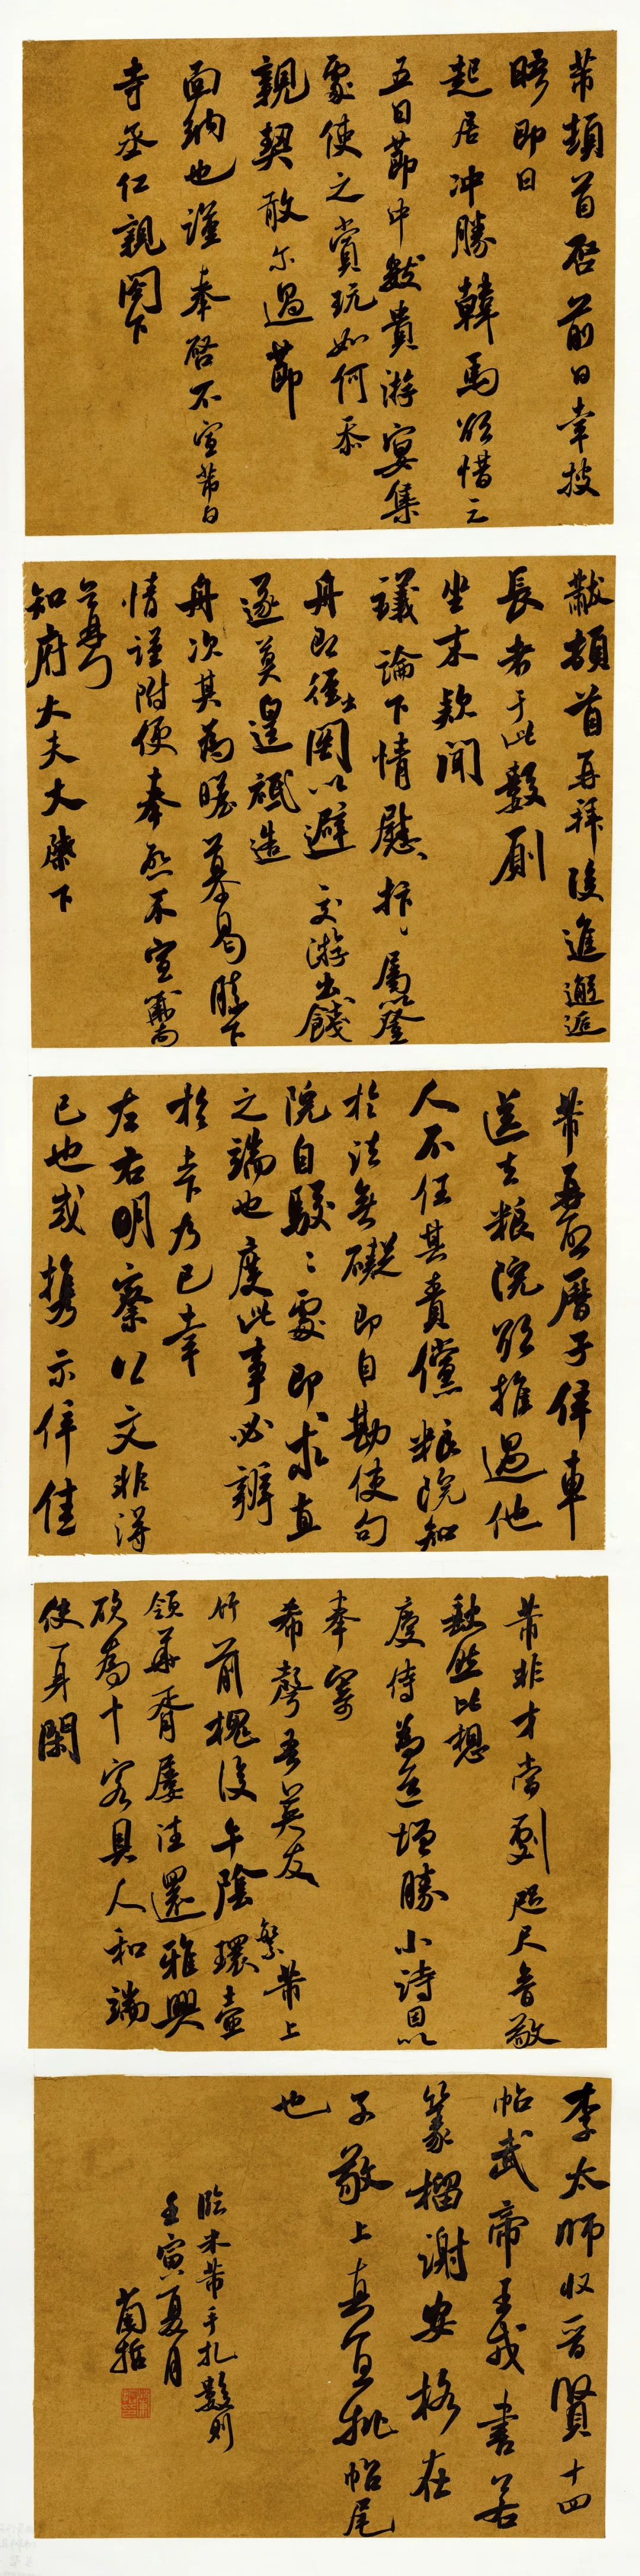 芾頓首啓前日幸披
晤即日
起居冲勝韓馬欲借三
五日節中數貴游宴集
處使之賞玩如何忝
親契敢尔過節
面納也謹奉啓不宣芾白
寺丞仁親閤下
黻頓首再拜後進邂逅
長者于此數厠
坐末款聞
議論下情慰抃屬以登
舟即徑出關以避交游出餞
遂莫皇祗造
舟次其為瞻慕曷勝下
情謹附便奉啓不宣黻頓首
知府大夫大棨下
芾再啓曆子倅車
送去粮院欲推過他
人不任其責儻粮院知
於法無礙即自勘使句
院自駮駮處即求直
之端也度此事必辦
於卡下乃已幸
左右明察以文非得
已也或攜示倅佳
芾非才當劇咫尺音敬
缺然比想
慶侍為道增勝小詩因以
奉寄
希聲吾英友 芾上
竹前槐後午陰環壺
領華胥屢往還雅興
欲為十客具人和端
使一身閑
李太師收晉賢十四
帖武帝王戎書若
篆榴謝安格在
子敬上真宜批帖尾
也
臨米芾手札數則
壬寅夏月
蘭哲